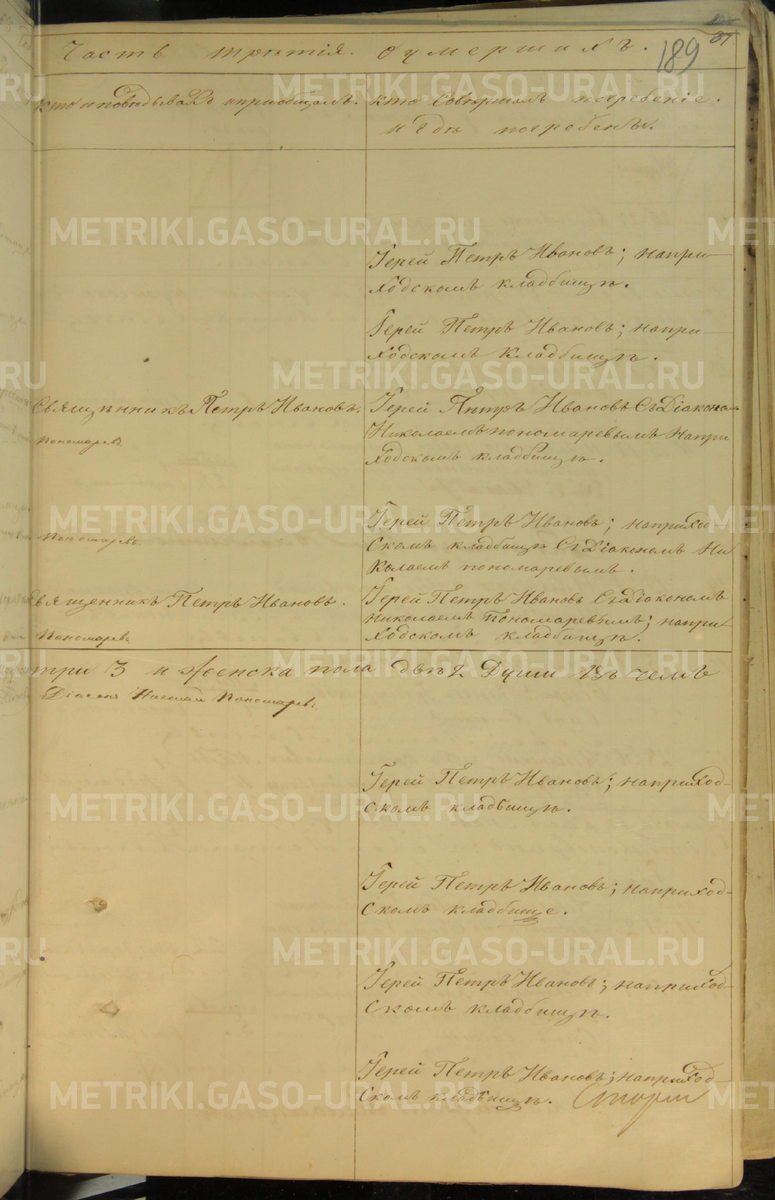 87
189
Часть третія. о умершихъ.
кто исповѣдывалъ и пріобщалъ.
кто совершалъ погребеніе.
и гдѣ погребены.
Іерей Петръ Ивановъ; на при-
ходскомъ кладбищѣ.
Іерей Петръ Ивановъ; на при-
ходскомъ кладбищѣ.
Священникъ Петръ Ивановъ.
Пономаревъ
Іерей Петръ Ивановъ съ Діакономъ
Николаемъ Пономаревымъ на при
ходскомъ кладбищѣ.
Пономаревъ
Іерей Петръ Ивановъ; на приход-
скомъ кладбищѣ съ Діакономъ Ни
колаемъ Пономаревымъ.
Священникъ Петръ Ивановъ.
Пономаревъ
Іерей Петръ Ивановъ съ Діакономъ
Николаемъ Пономаревымъ; на при
ходскомъ кладбищѣ.
три 3 и женска пола двѣ 2 Души въ чемъ
Діаконъ Николай Пономаревъ
Іерей Петръ Ивановъ; на приход-
скомъ кладбищѣ.
Іерей Петръ Ивановъ; на приход-
скомъ кладбище.
Іерей Петръ Ивановъ; на приход-
скомъ кладбищѣ.
Іерей Петръ Ивановъ; на приход-
скомъ кладбищѣ.
METRIKI.GASO-URAL.RU